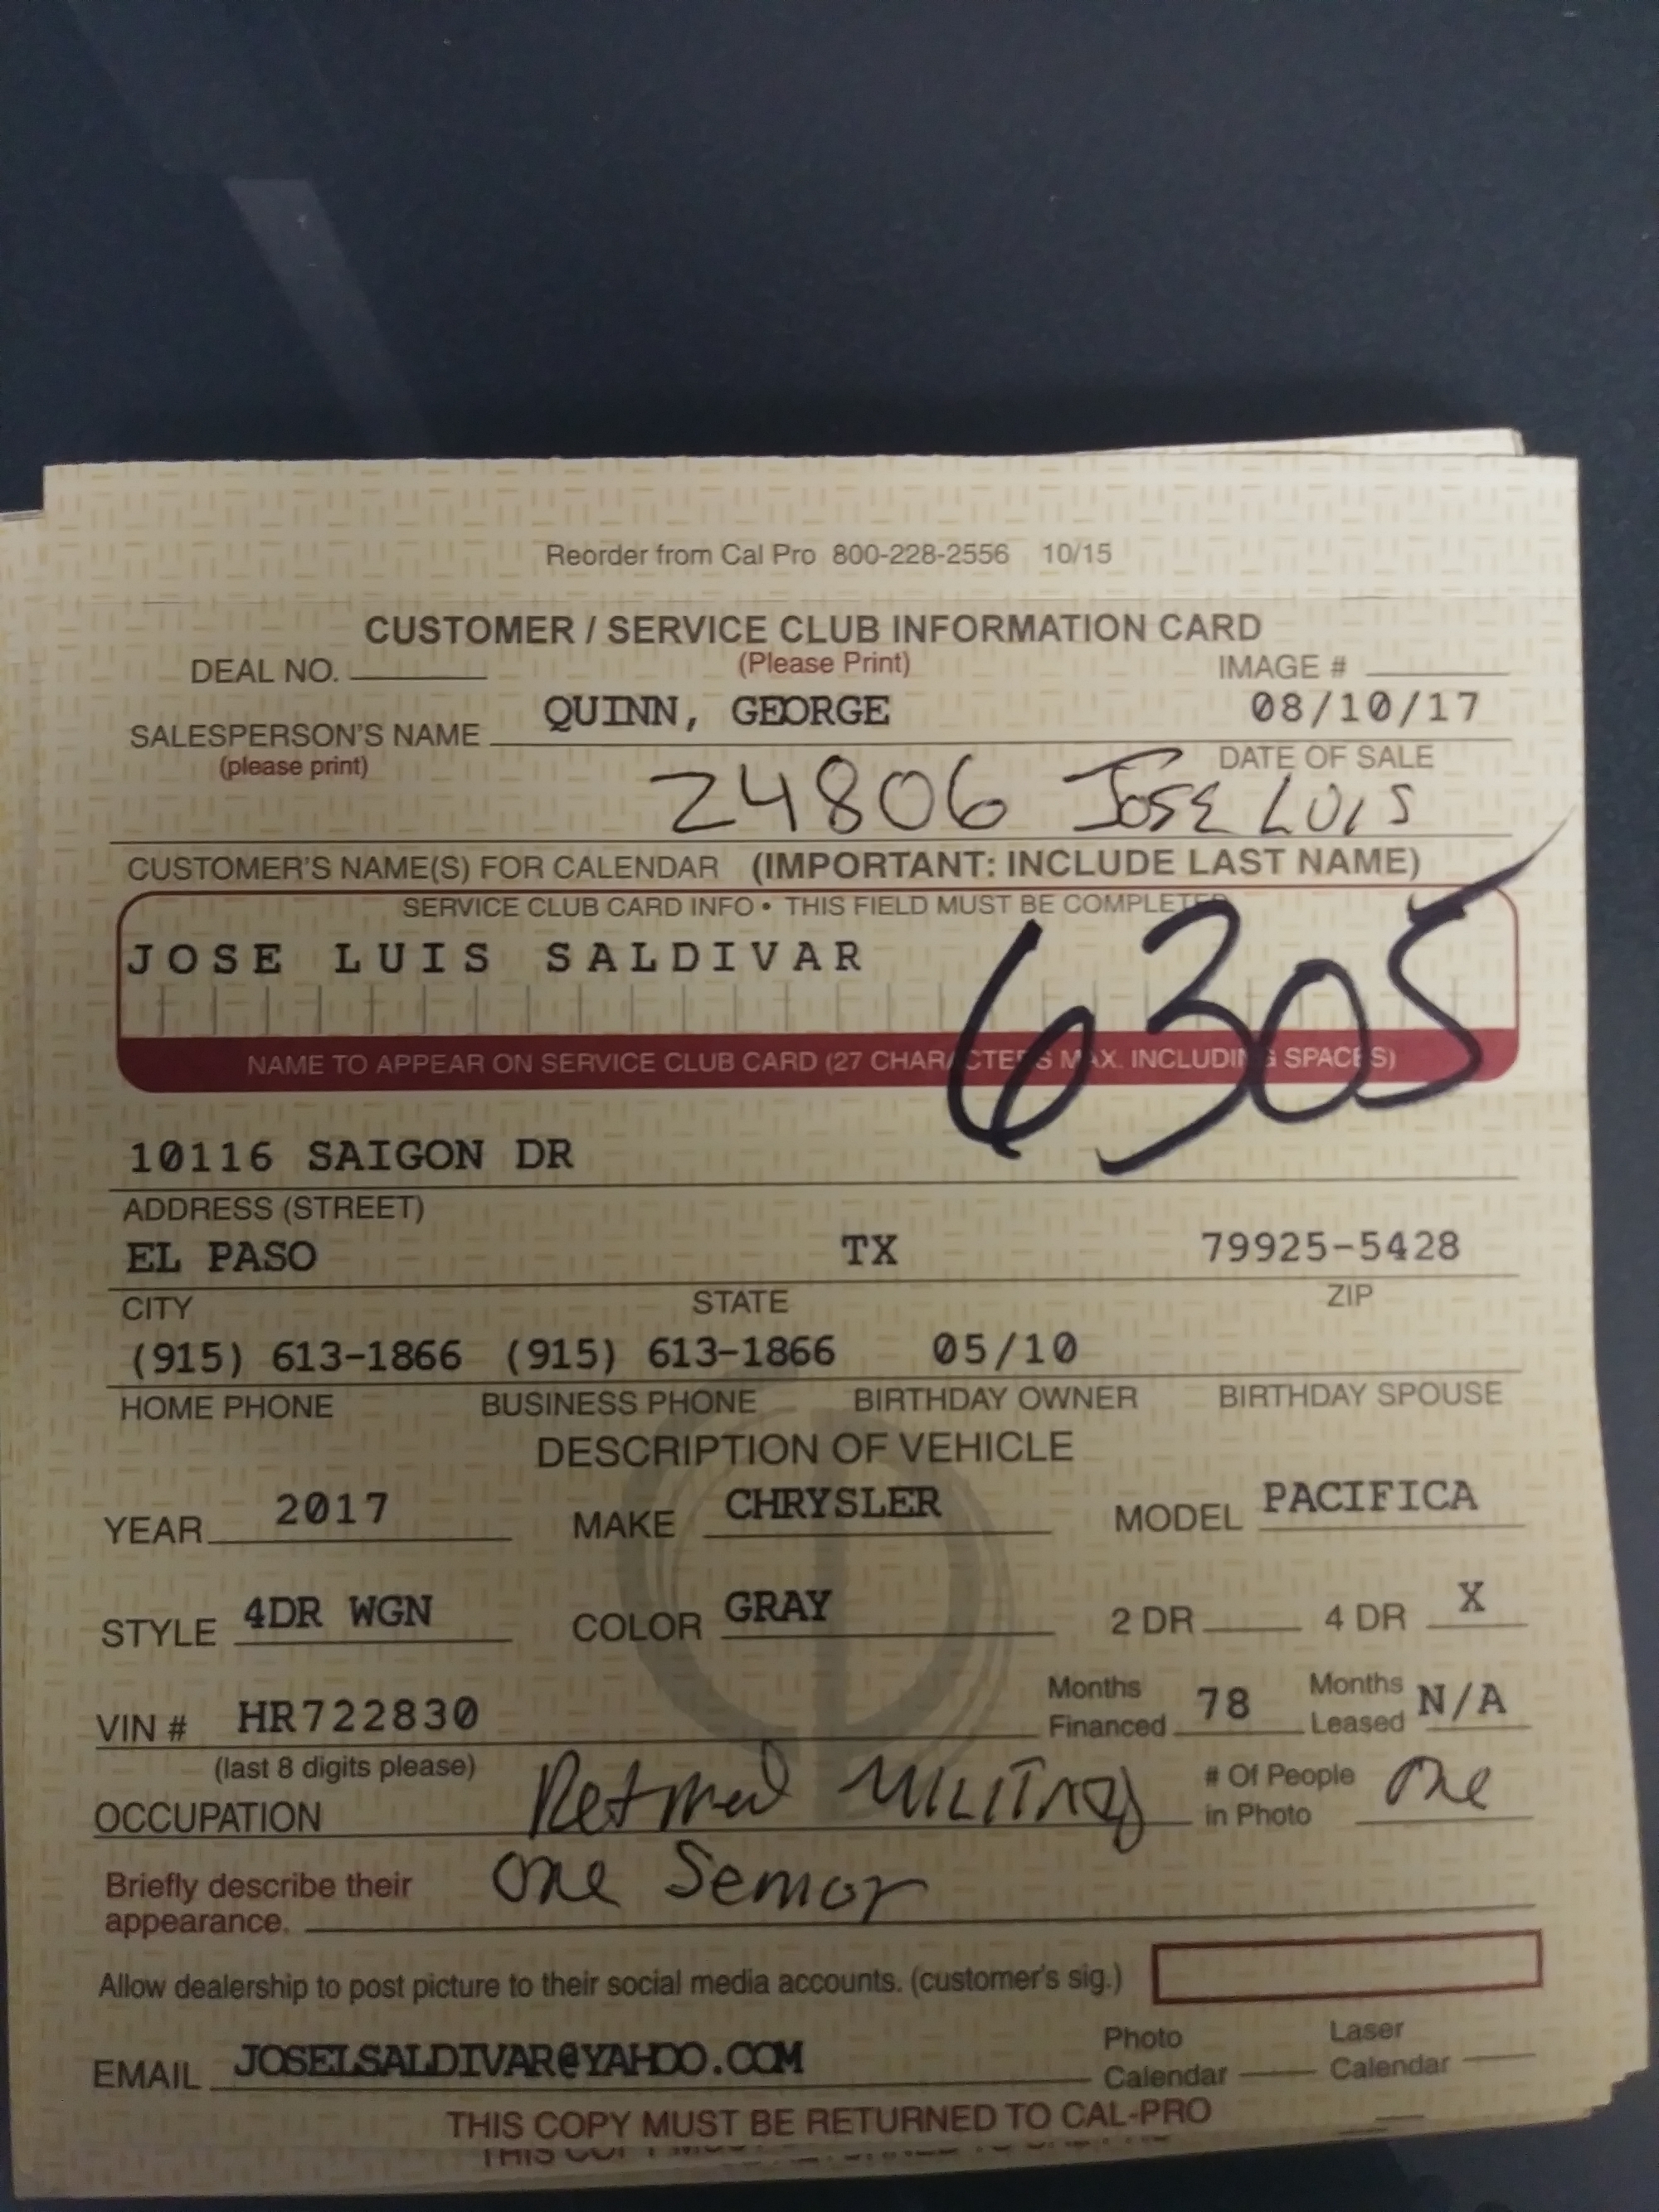 Reorder from Cal Pro 800-228-2556 10/15
CUSTOMER / SERVICE CLUB INFORMATION CARD
DEAL NO. (Please Print) IMAGE #
QUINN, GEORGE 08/10/17
SALESPERSON'S NAME DATE OF SALE
(please print)
24806 JOSE LUIS
CUSTOMER'S NAME(S) FOR CALENDAR (IMPORTANT: INCLUDE LAST NAME)
SERVICE CLUB CARD INFO • THIS FIELD MUST BE COMPLETED
JOSE LUIS SALDIVAR
6305
NAME TO APPEAR ON SERVICE CLUB CARD (27 CHARACTERS MAX. INCLUDING SPACES)
10116 SAIGON DR
ADDRESS (STREET)
EL PASO TX 79925-5428
CITY STATE ZIP
(915) 613-1866 (915) 613-1866 05/10
HOME PHONE BUSINESS PHONE BIRTHDAY OWNER BIRTHDAY SPOUSE
DESCRIPTION OF VEHICLE
YEAR 2017 MAKE CHRYSLER MODEL PACIFICA
STYLE 4DR WGN COLOR GRAY 2 DR 4 DR X
VIN # HR722830 Months Financed 78 Months Leased N/A
(last 8 digits please)
OCCUPATION Retired MILITARY # Of People in Photo One
Briefly describe their appearance. One Senior
Allow dealership to post picture to their social media accounts. (customer's sig.)
EMAIL JOSELSALDIVAR@YAHOO.COM Photo Calendar Laser Calendar
THIS COPY MUST BE RETURNED TO CAL-PRO